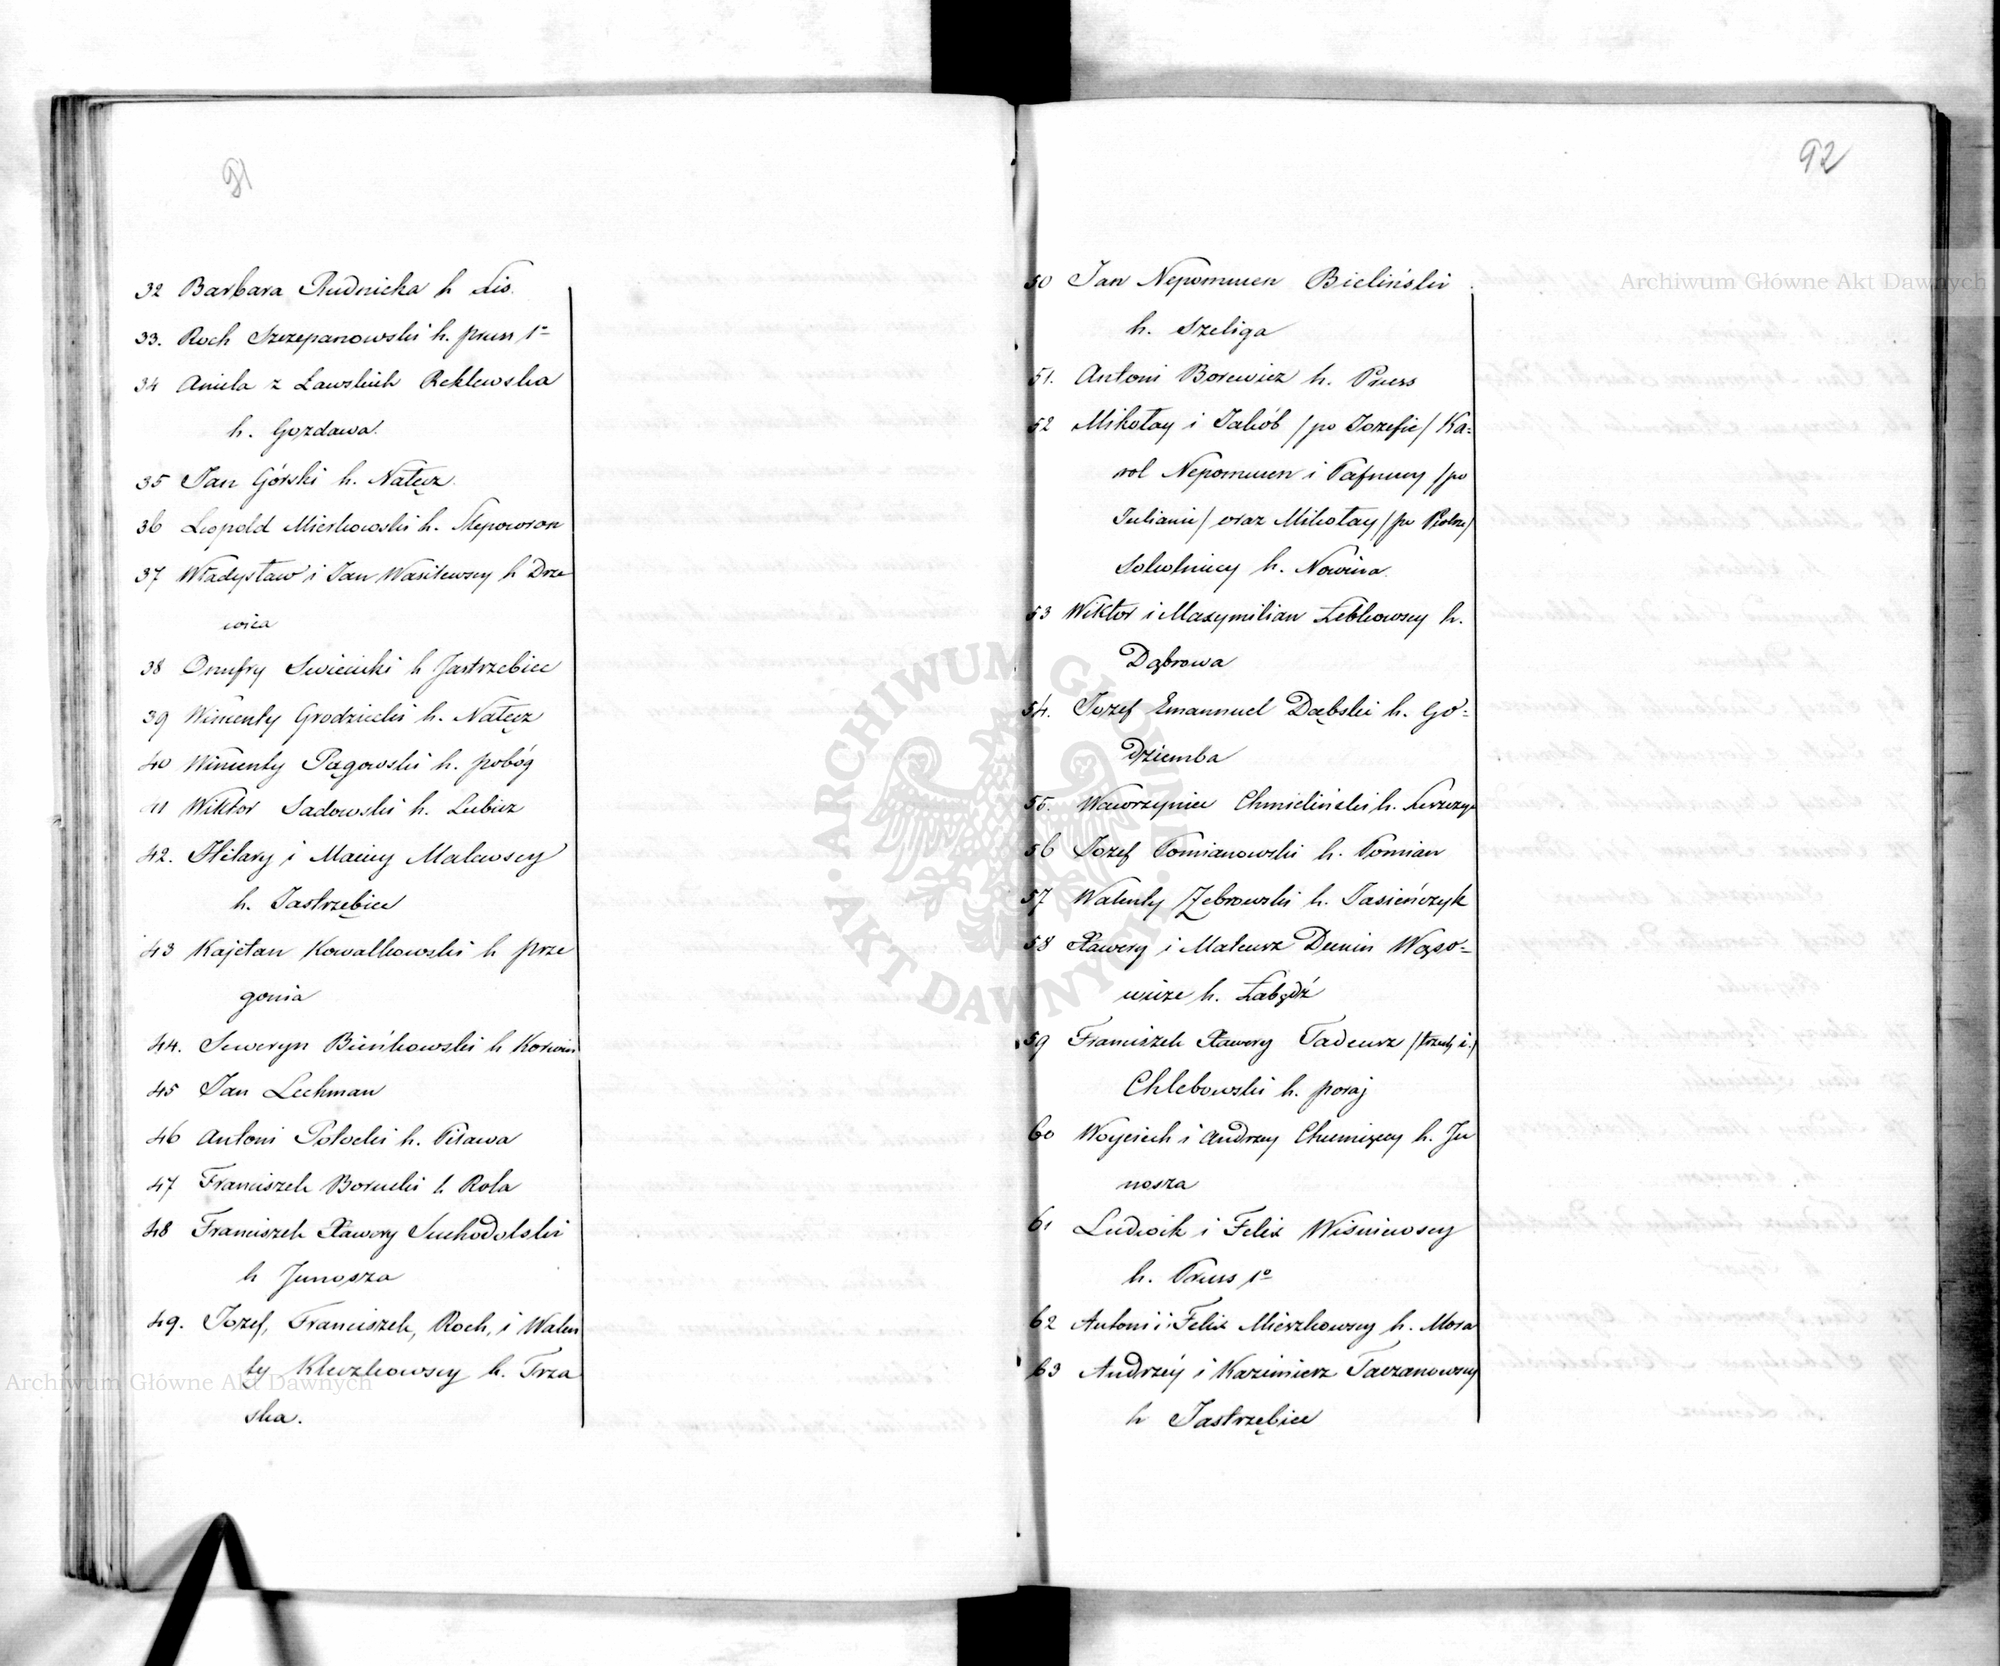 91
32 Barbara Rudnicka h Lis.
33. Roch Szczepanowski h. prus 1º
34 Aniela z Ławskich Reklewska
h. Gozdawa.
35 Jan Górski h. Nałęcz.
36 Leopold Mierkowski h. Slepowron
37 Władysław i Jan Wasilewscy h Drze
wica
38 Onufry Swiecicki h Jastrzebiec
39 Wincenty Grodzicki h. Nałęcz
40 Wincenty Pągowski h. pobóg
41 Wiktor Sadowski h. Lubicz
42. Hilary i Maciey Malewscy
h. Jastrzębiec
43 Kajetan Kowalkowski h prze
gonia
44. Seweryn Bieńkowski h Korwin
45 Jan Lechman
46 Antoni Potocki h. Pilawa
47 Franciszek Borucki h Rola
48 Franciszek Xawery Suchodolski
h Junosza
49. Jozef, Franciszek, Roch, i Walen
ty Kluczkowscy h. Trza
ska.
92
50 Jan Nepomucen Bieliński
h. Szeliga
51. Antoni Borewicz h. Pruss
52 Mikołay i Jakób /po Jozefie/ Ka=
rol Nepomucen i Pafnucy /po
Julianie/ oraz Mikołay /po Piotrze/
Sokolniccy h. Nowina.
53 Wiktor i Maxymilian Żebkowscy h.
Dąbrowa
54. Jozef Emannuel Dąbski h. Go=
dziemba
55. Wawrzyniec Chmieliński h.
56 Jozef Pomianowski h. Pomian
57 Walenty Żebrowski h. Jasieńczyk
58 Xawery i Mateusz Dunin Wąso=
wicze h. Łabędź
59 Franciszek Xawery Tadeusz /trzech i./
Chlebowski h. poraj
60 Woyciech i Andrzey h. Ju
nosza
61 Ludwik i Felix Wiśniewscy
h. Pruss 1º
62 Antoni i Felix Mierzkowscy h. Mora
63 Andrzéy i Kazimierz Taczanowscy
h Jastrzębiec
Archiwum Główne Akt Dawnych
Archiwum Główne Akt Dawnych
ARCHIWUM GŁÓWNE AKT DAWNYCH